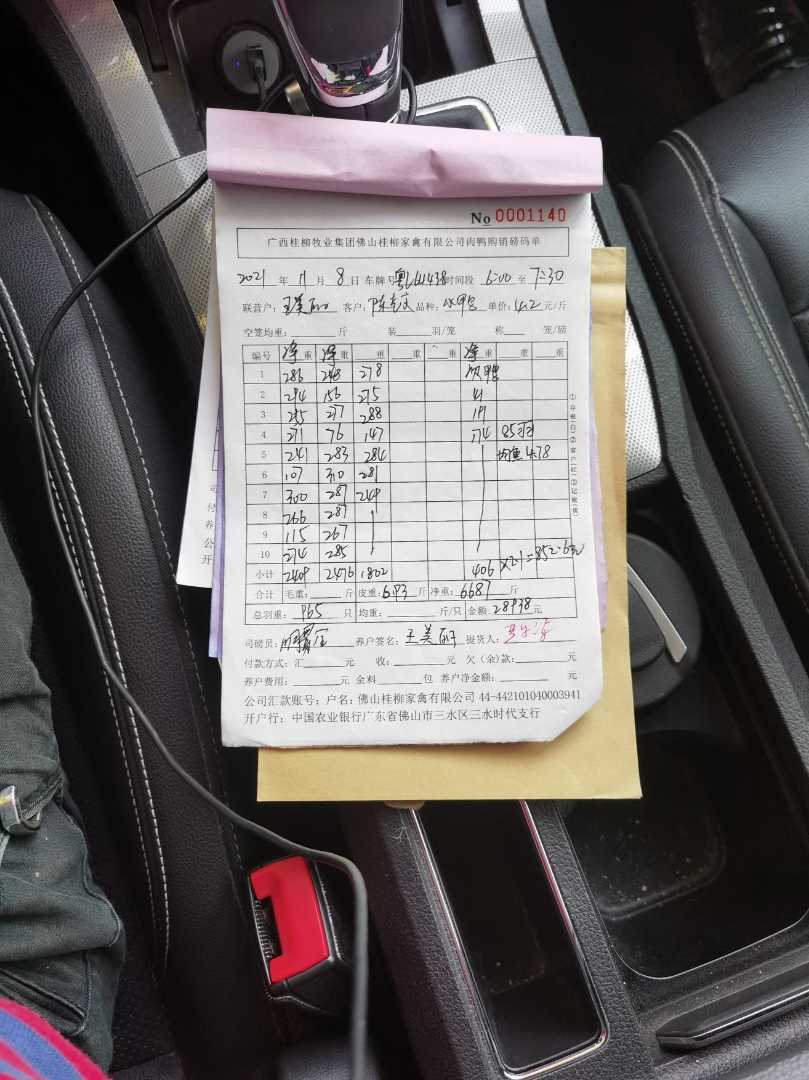 No 0001140
广西桂柳牧业集团佛山桂柳家禽有限公司肉鸭购销磅码单
2021 年 11 月 8 日 车牌号 时间段 6:00 至 7:30
联营户: 王美 客户: 陈 品种: 鸭 单价: 4.2 元/斤
空笼均重: 斤 装 羽/笼 称 笼/磅
编号 净重 净重 重 重 净重 重 重
1 286 248 278 鸭
2 294 156 275 41
3 255 277 288 191
4 271 76 147 174 85
5 241 283 284 均重 4.78
6 107 310 281
7 300 287 249
8 266 287
9 115 267
10 274 285
小计 2409 2476 1802 406 ×2.1=852.6元
合计 毛重: 斤 皮重: 斤 净重: 6687 斤
总羽重: 965 只 均重: 斤/只 金额: 28938 元
司磅员: 养户签名: 王美 提货人:
付款方式: 汇 元 收: 元 欠(余)款: 元
养户费用: 元 余料 包 养户净金额: 元
公司汇款账号: 户名: 佛山桂柳家禽有限公司 44-442101040003941
开户行: 中国农业银行广东省佛山市三水区三水时代支行